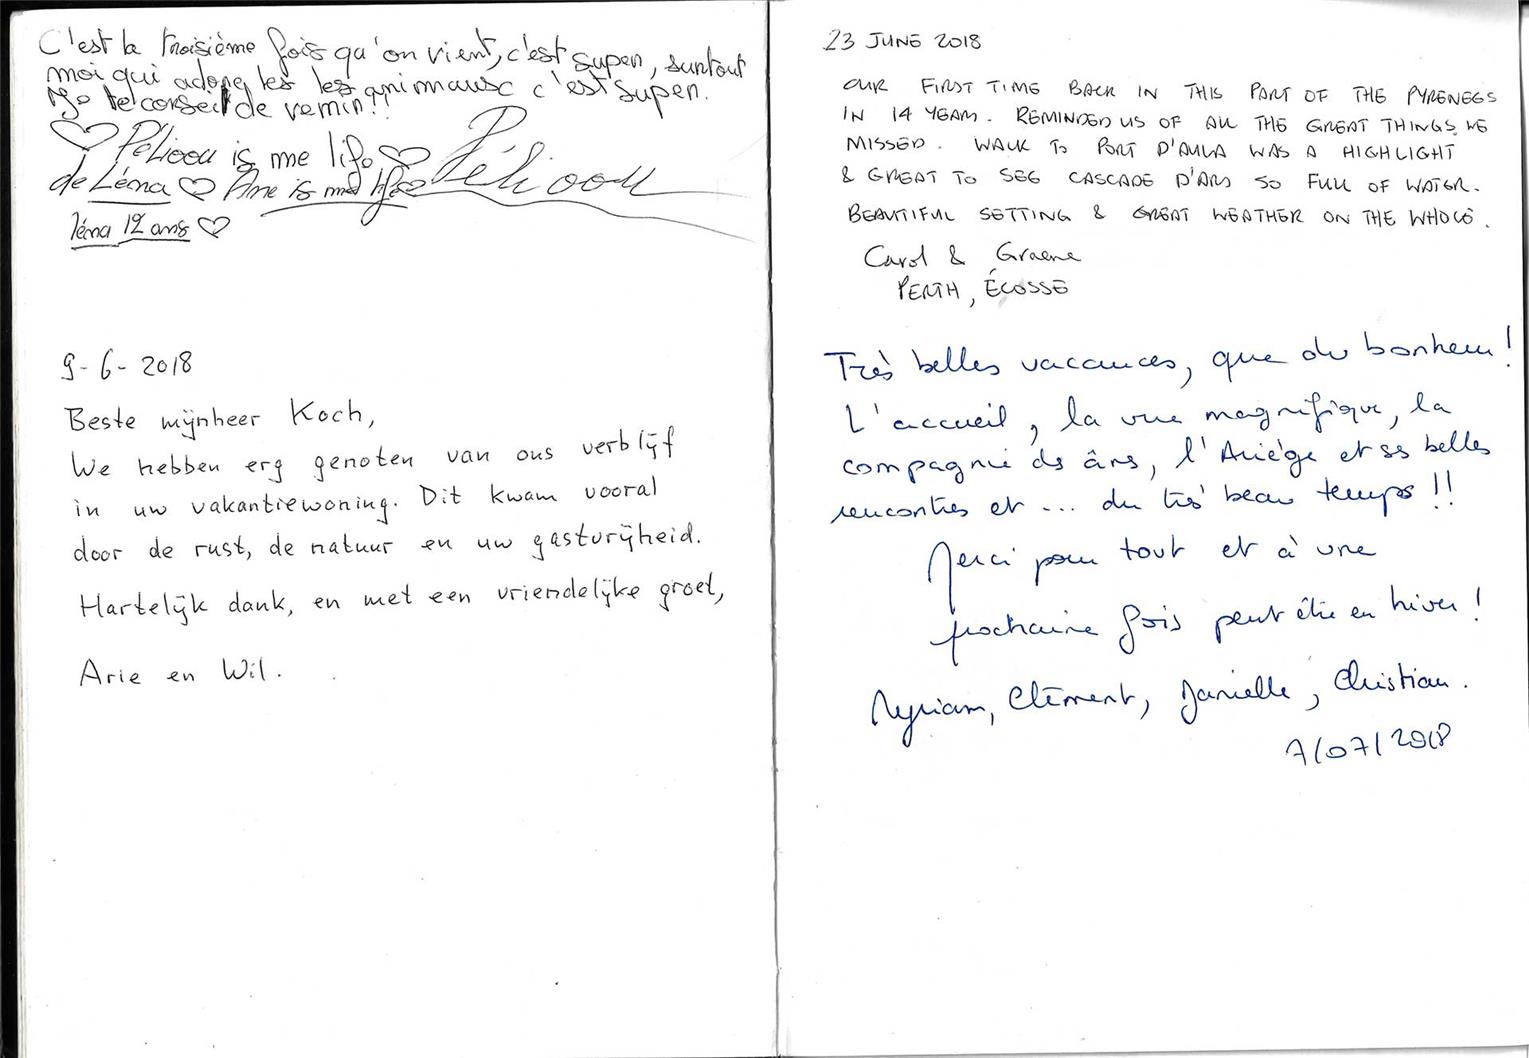 C'est la troisième fois qu'on vient, c'est super, surtout
moi qui adore les les animausc c'est super.
Je te conseil de venir!!
♡ Péliou is me life ♡ Péliou
de Léma ♡ Ane is me life
léma 12 ans ♡
9-6-2018
Beste mijnheer Koch,
We hebben erg genoten van ons verblijf
in uw vakantiewoning. Dit kwam vooral
door de rust, de natuur en uw gastvrijheid.
Hartelijk dank, en met een vriendelijke groet,
Arie en Wil.
23 JUNE 2018
OUR FIRST TIME BACK IN THIS PART OF THE PYRENEES
IN 14 YEARS. REMINDED US OF ALL THE GREAT THINGS WE
MISSED. WALK TO PORT D'AULA WAS A HIGHLIGHT
& GREAT TO SEE CASCADE D'ARS SO FULL OF WATER.
BEAUTIFUL SETTING & GREAT WEATHER ON THE WHOLE.
Carol & Graeme
PERTH, ÉCOSSE
Très belles vacances, que du bonheur!
L'accueil, la vue magnifique, la
compagnie des ânes, l'Ariège et ses belles
rencontres et ... du très beau temps!!
Merci pour tout et à une
prochaine fois peut être en hiver!
Myriam, Clément, Danielle, Christian.
7/07/2018